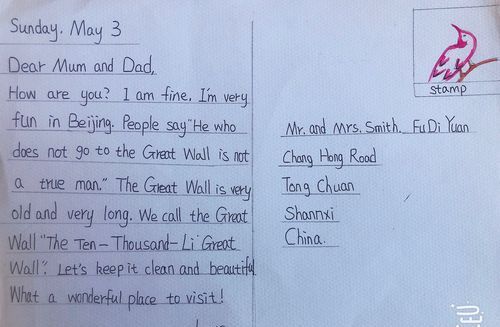 Sunday. May 3
Dear Mum and Dad,
How are you? I am fine. I'm very
fun in Beijing. People say "He who
does not go to the Great Wall is not
a true man." The Great Wall is very
old and very long. We call the Great
Wall "The Ten-Thousand-Li Great
Wall". Let's keep it clean and beautiful
What a wonderful place to visit!
stamp
Mr. and Mrs. Smith. FuDi Yuan
Chang Hong Road
Tong Chuan
Shannxi
China.